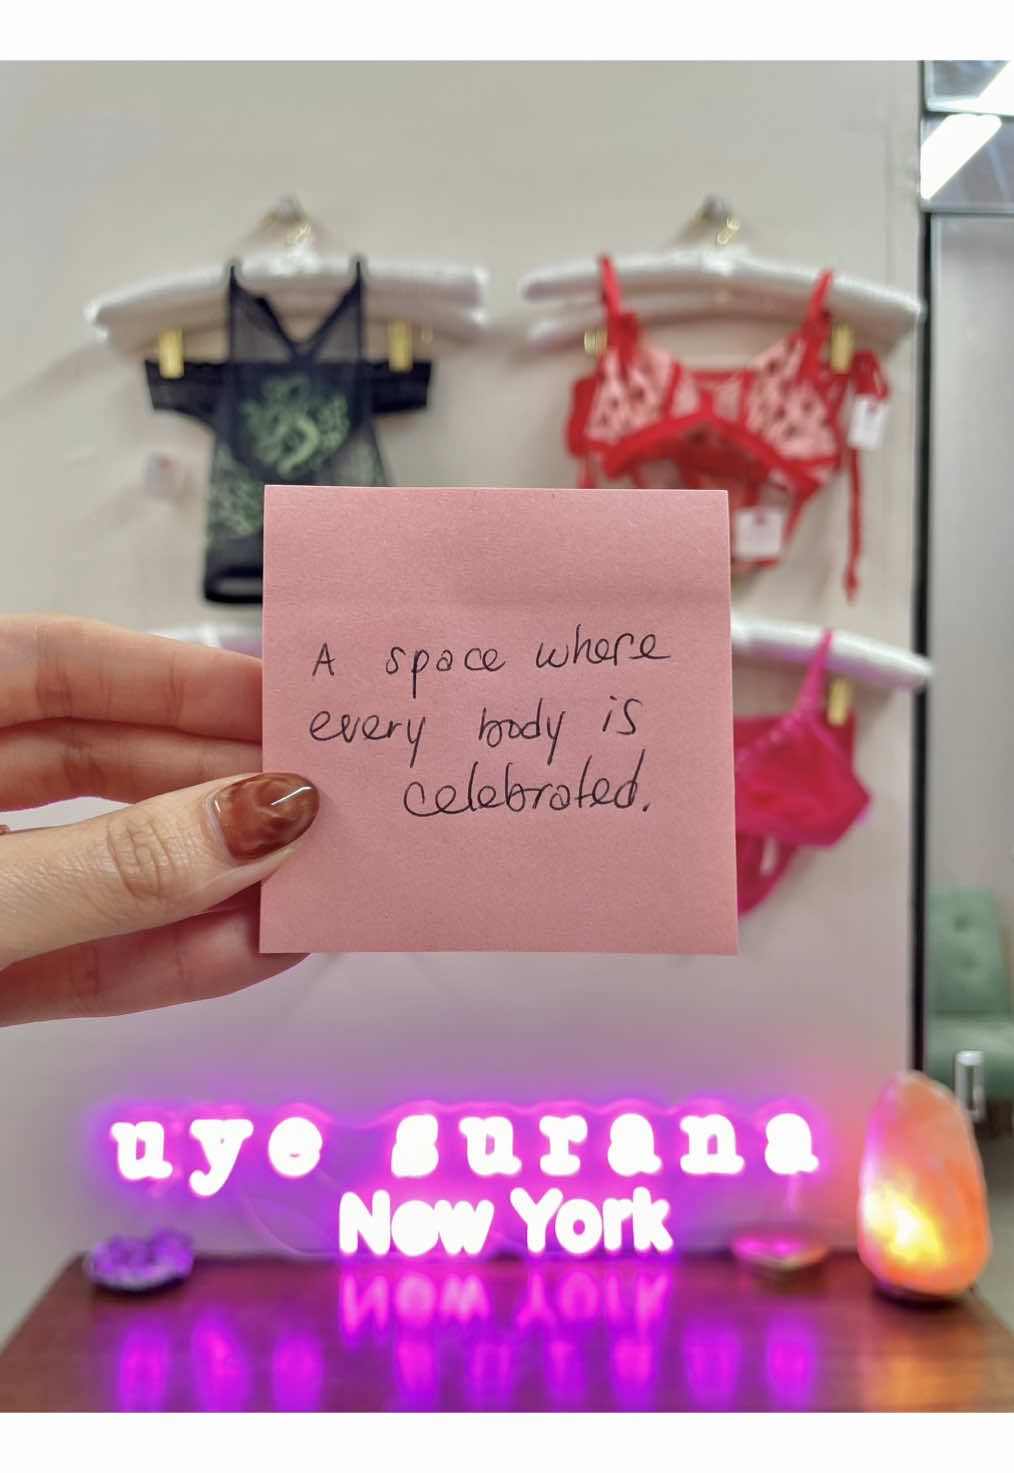 A space where
every body is
celebrated.
uye surana
New York